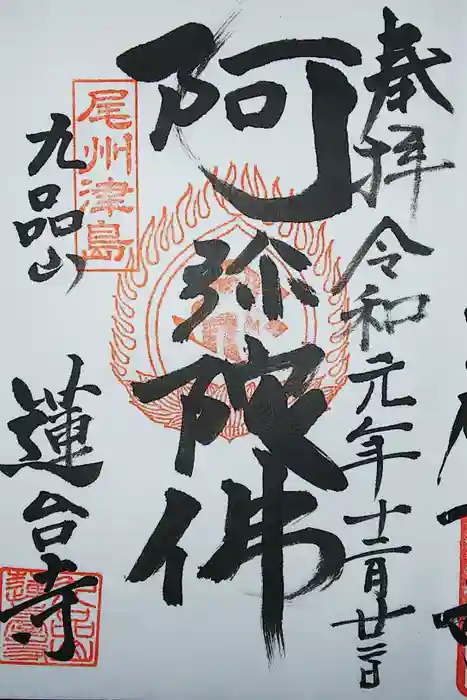 奉拝
令和元年十二月廿二日
阿弥陀佛
尾州津島
九品山
蓮台寺